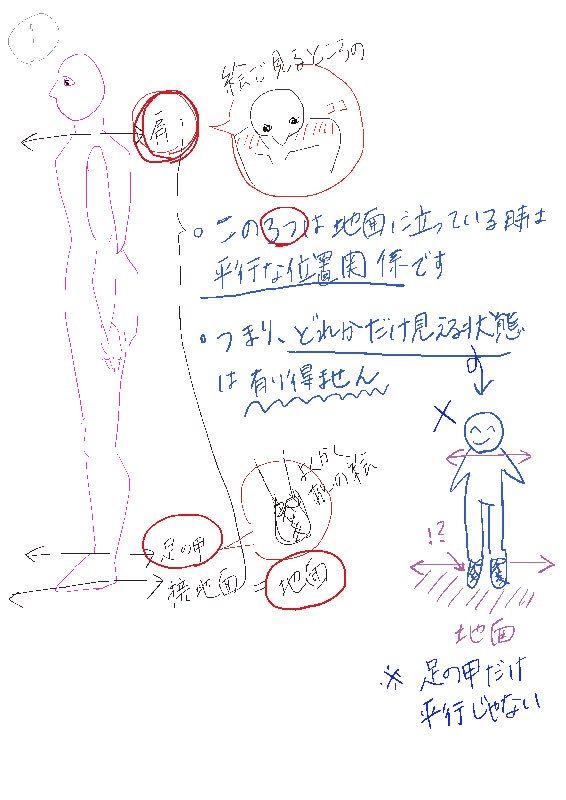 1
絵で見るところの
肩
ココ
・この3つは地面に立っている時は
平行な位置関係です
・つまり、どれかだけ見える状態
は有り得ません
の
×
よく描く
靴の絵
足の甲
接地面 = 地面
!?
地面
※ 足の甲だけ
平行じゃない